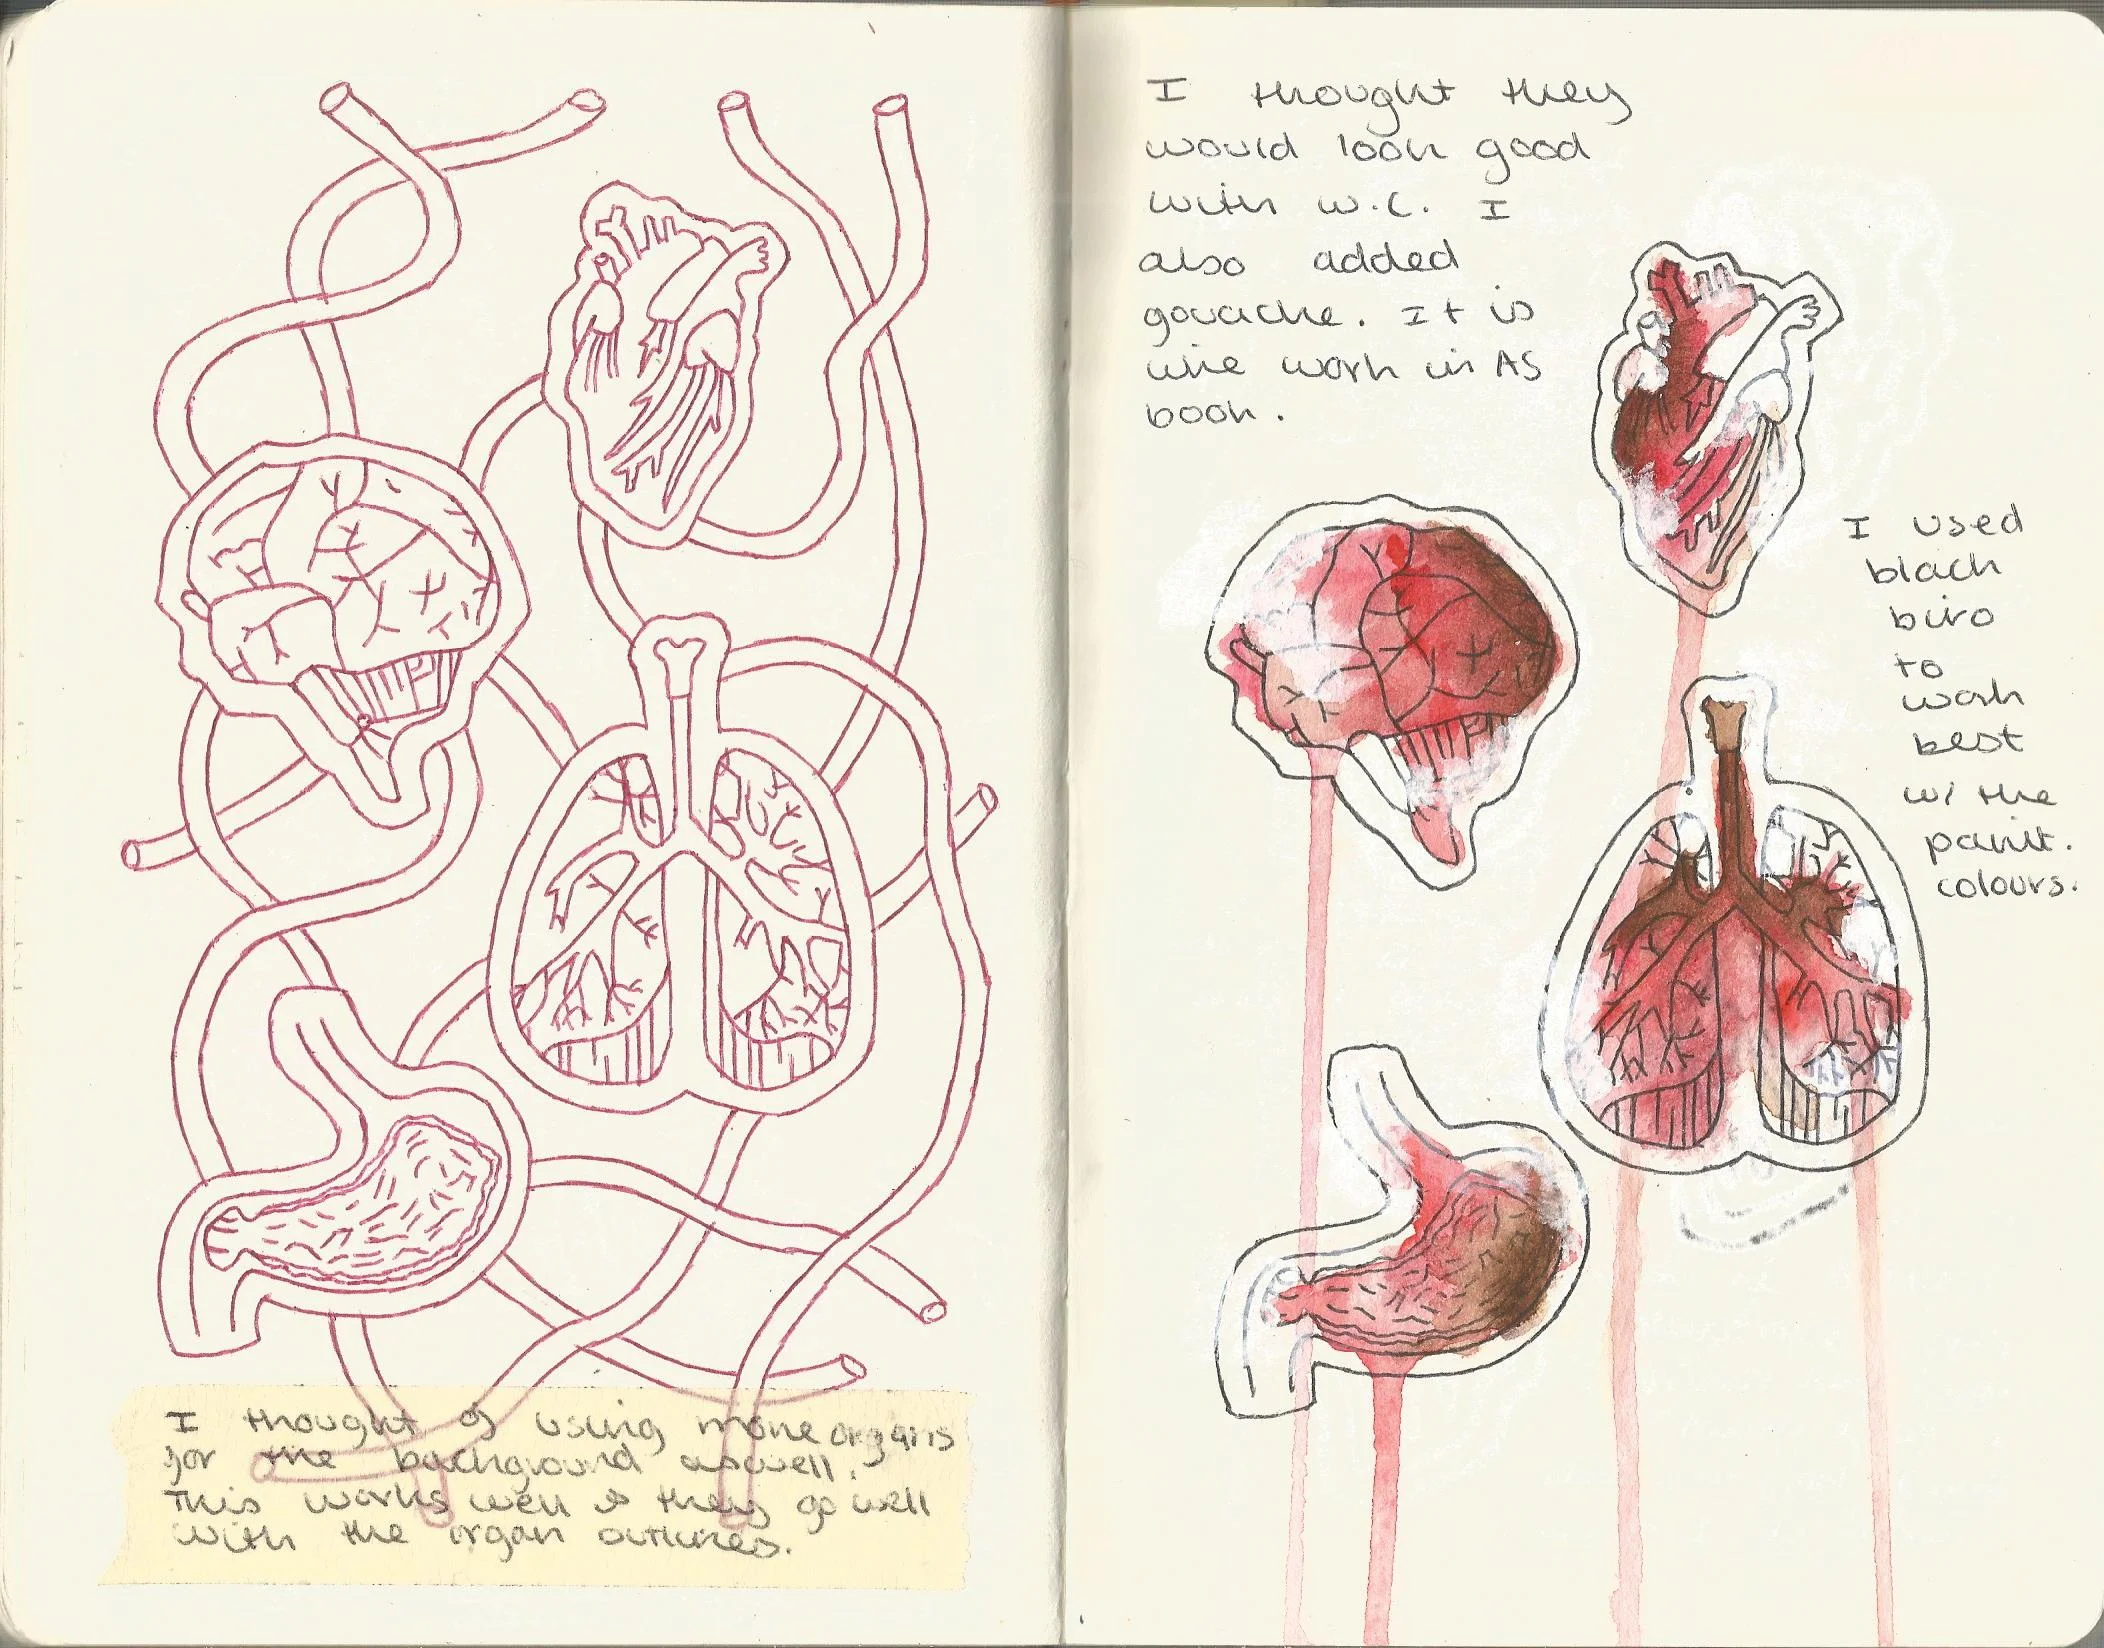 I thought of using more organs
for the background aswell.
This works well & they go well
with the organ outlines.
I thought they
would look good
with w.c. I
also added
gouache. It is
like work in AS
book.
I used
black
biro
to
work
best
w/ the
paint.
colours.